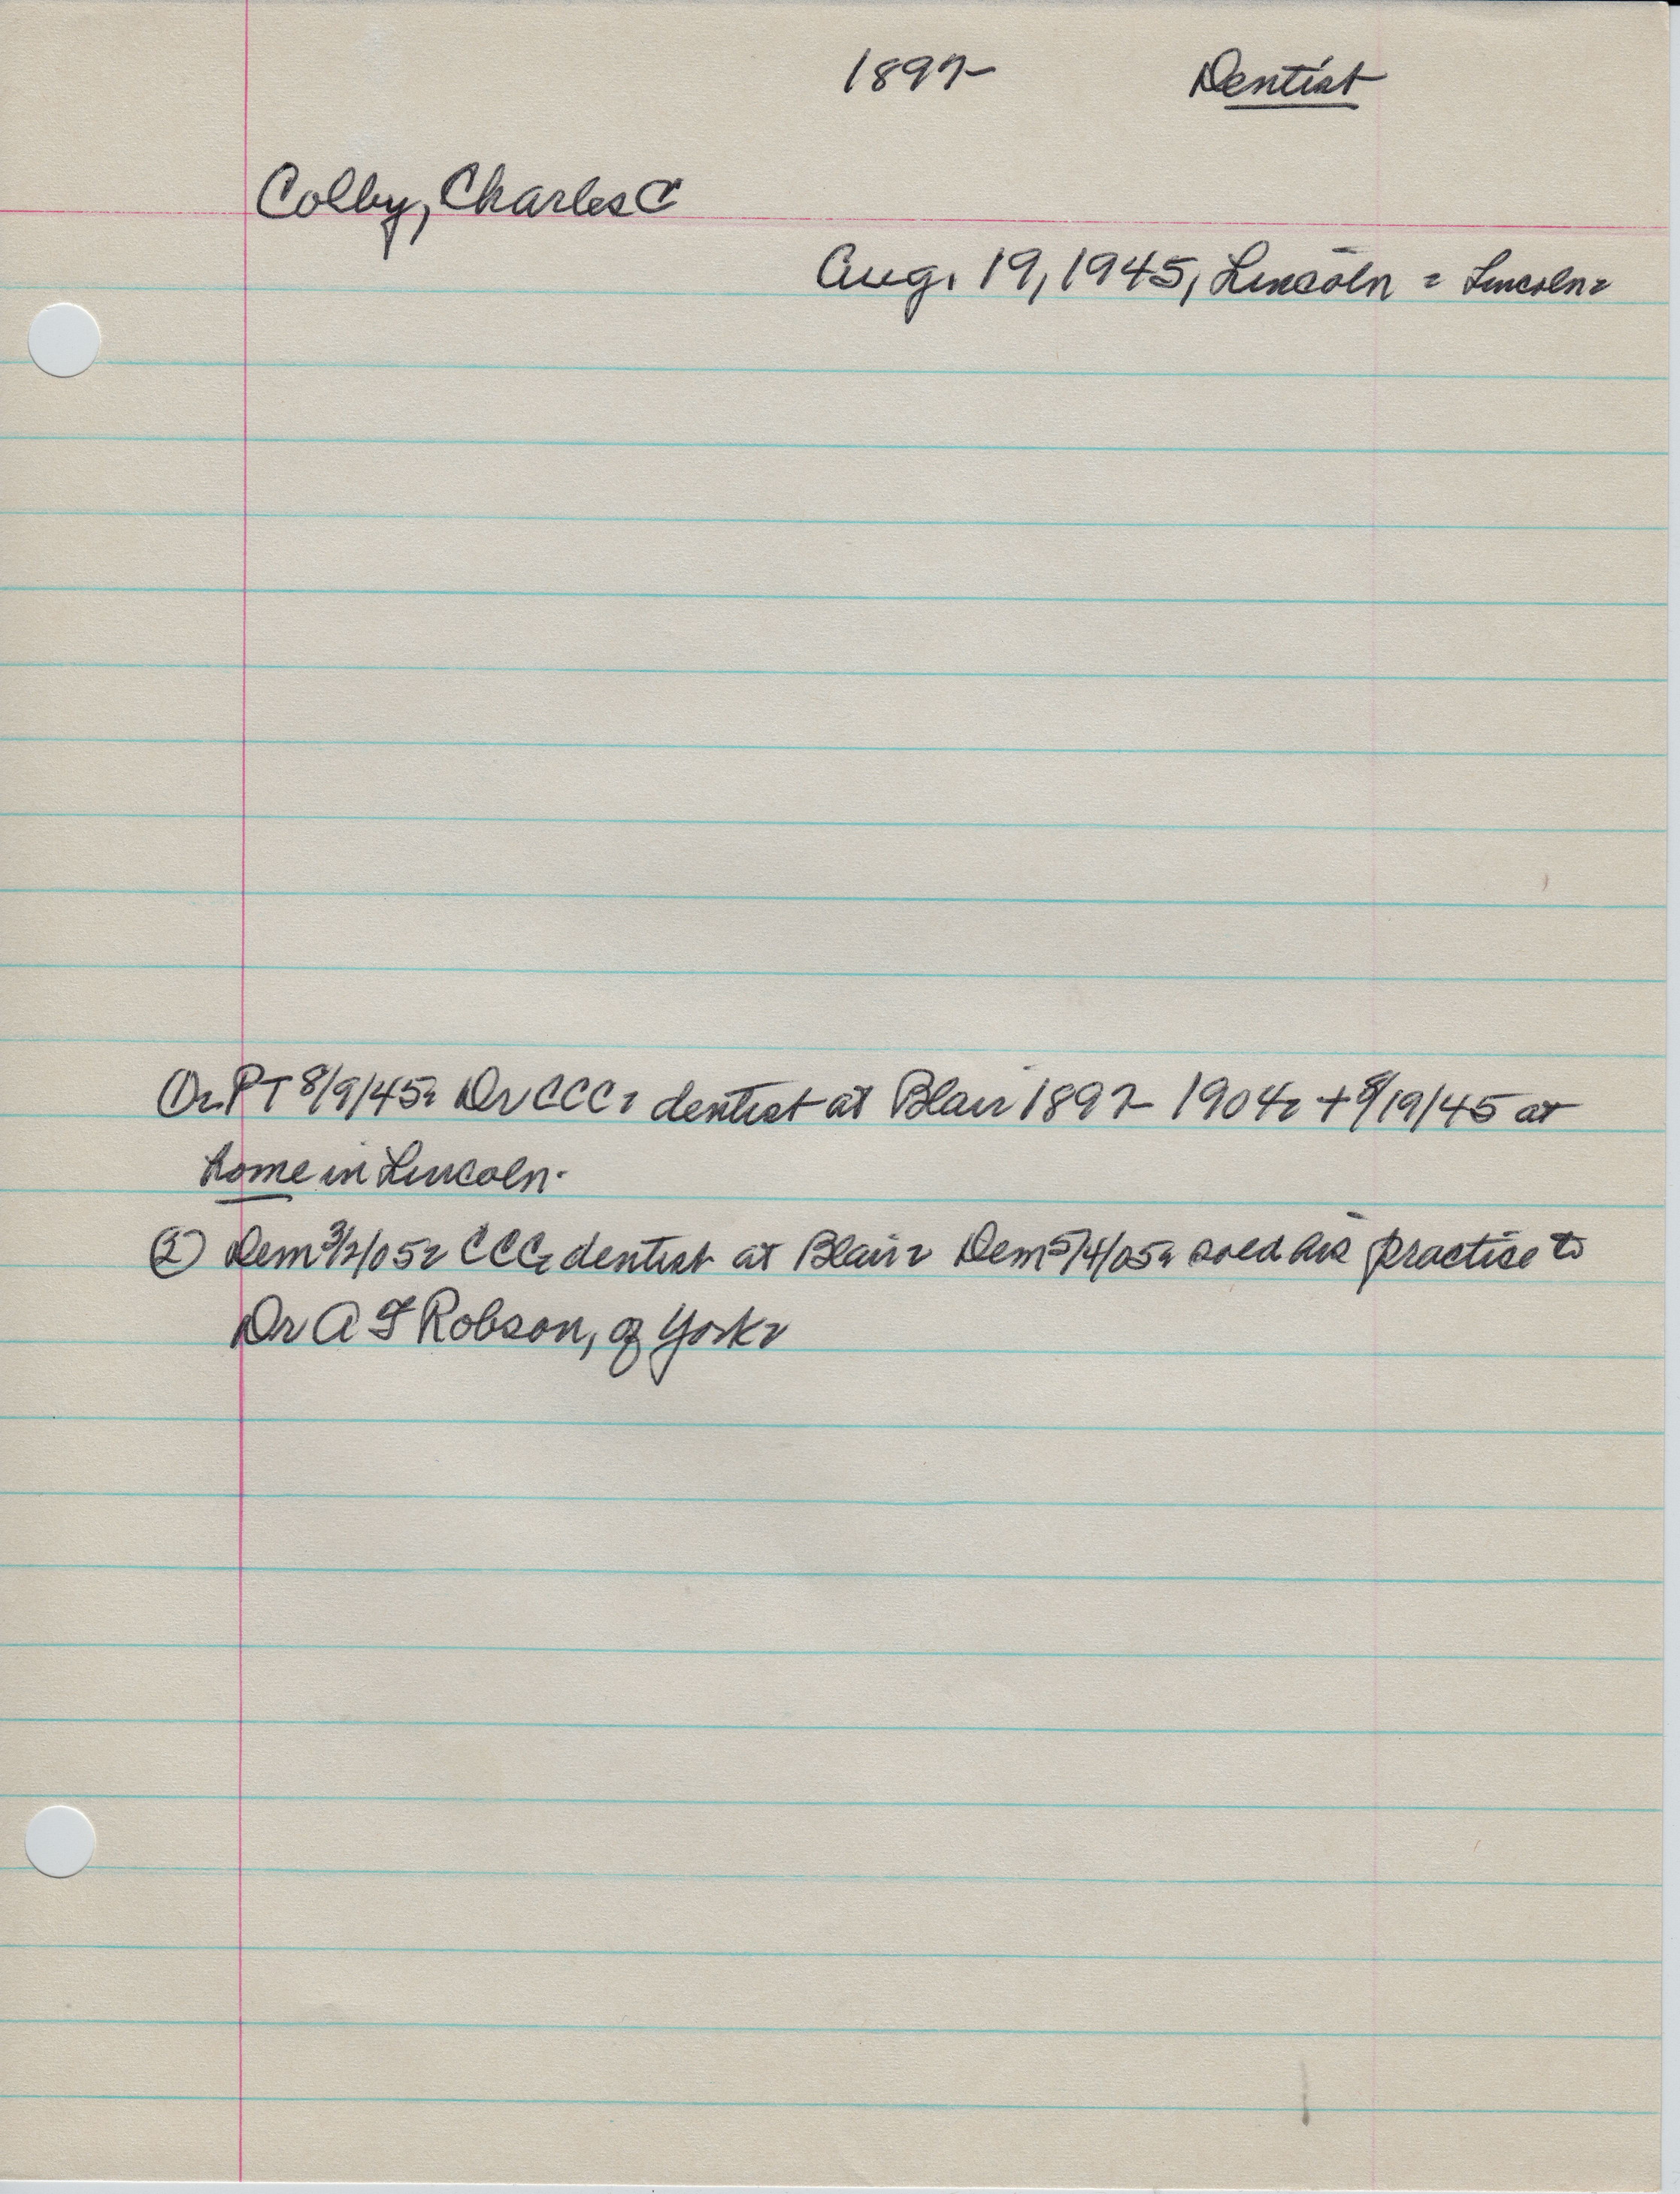 1897- Dentist
Colby, Charles C
Aug. 19, 1945, Lincoln = Lincoln=
① PT 8/9/45= Dr CCC= dentist at Blair 1897-1904= + 8/19/45 at
home in Lincoln.
② Dem 3/2/05= CCC= dentist at Blair= Dem 5/4/05= sold his practise to
Dr A F Robson, of York=